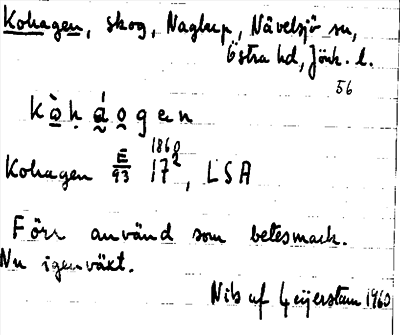 Kohagen, skog, Naglarp, Nävelsjö sn,
Östra hd, Jönk. l.
56
kòhágen
Kohagen E/93 1860 17², LSA
Förr använd som betesmark.
Nu igenväxt.
Nils af Geijerstam 1960